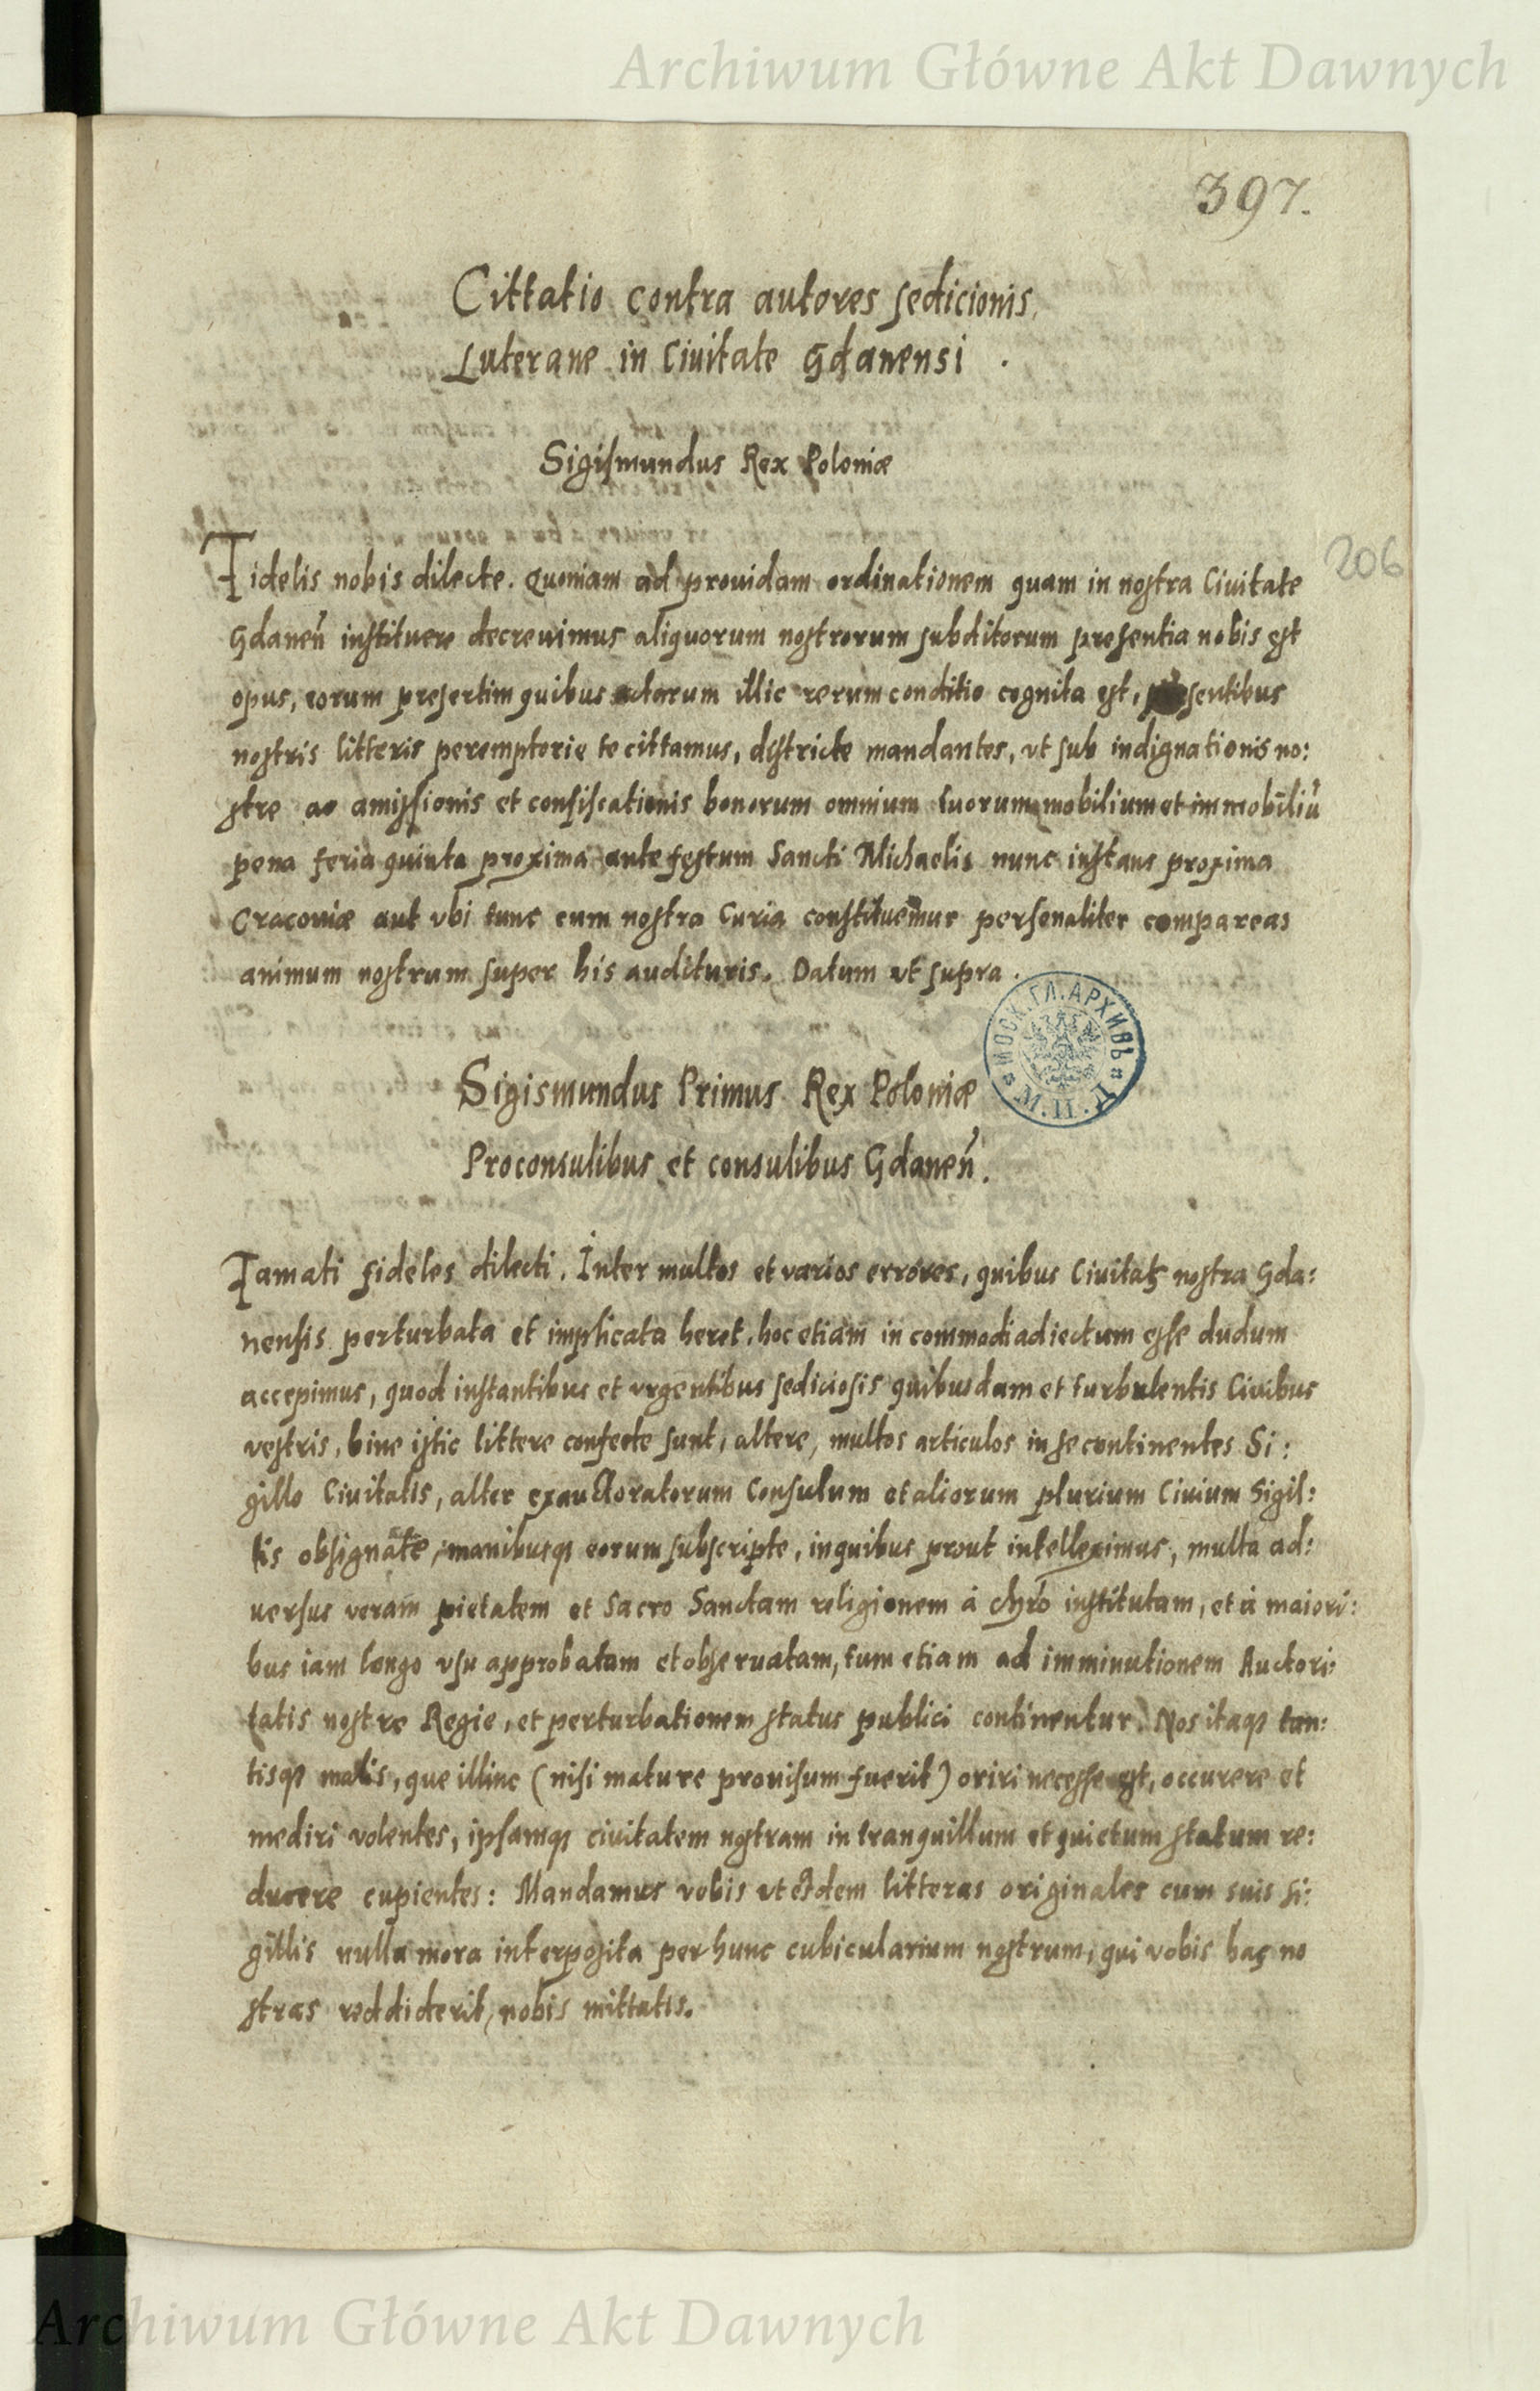 Archiwum Główne Akt Dawnych
397.
Cittatio contra autores sedicionis
Luterane in Civitate Gdanensi .
Sigismundus Rex Poloniæ
206
Fidelis nobis dilecte. Quoniam ad prouidam ordinationem quam in nostra Civitate
Gdaneñ instituere decrevimus aliquorum nostrorum subditorum presentia nobis est
opus, eorum presertim quibus illic rerum conditio cognita est, presentibus
nostris litteris peremptorie te cittamus, districte mandantes, vt sub indignationis no:
stre ac amissionis et confiscationis bonorum omnium tuorum mobilium et immobiliũ
pena feria quinta proxima ante festum Sancti Michaelis nunc instans proxima
Cracoviæ aut vbi tunc cum nostra Curia constituemur personaliter compareas
animum nostrum super his audituris. Datum vt supra .
МОСК. ГЛ. АРХИВЪ
Sigismundus Primus Rex Poloniæ
Proconsulibus et consulibus Gdaneñ.
Famati fideles dilecti. Inter multos et varios errores, quibus Civitas nostra Gda:
nensis perturbata et implicata heret, hoc etiam in commodi adiectum esse dudum
accepimus, quod instantibus et vrgentibus sediciosis quibusdam et turbulentis Civibus
vestris, bine istic littere confecte sunt, altere, multos articulos in se continentes Si:
gillo Civitatis, alter exauctoratorum Consulum et aliorum plurium Civium Sigil:
lis obsignate, manibusq; eorum subscripte, in quibus prout intelleximus, multa ad:
uersus veram pietatem et Sacro Sanctam religionem à chřo institutam, et à maiori:
bus iam longo vsu approbatam et observatam, tum etiam ad imminutionem Auctori:
tatis nostre Regie, et perturbationem status publici continentur. Nos itaq; tan:
tisq; malis, que illinc (nisi mature provisum fuerit) oriri necesse est, occurere et
mederi volentes, ipsamq; civitatem nostram in tranquillum et quietum statum re:
ducere cupientes: Mandamus vobis vt eãdem litteras originales cum suis si:
gillis nulla mora interposita per hunc cubicularium nostrum, qui vobis has no
stras reddiderit, nobis mittatis.
Archiwum Główne Akt Dawnych